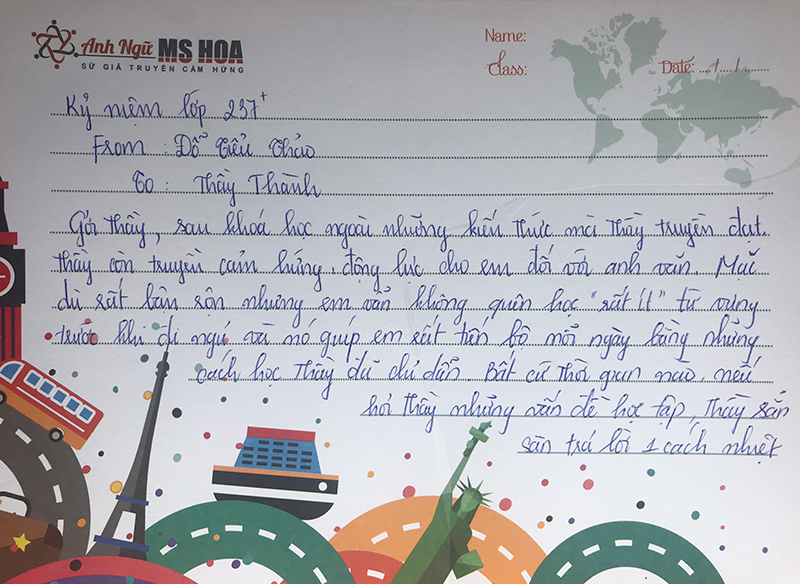 Anh Ngữ MS HOA
SỨ GIẢ TRUYỀN CẢM HỨNG
Name:
Class:
Date: ..../..../........
Kỷ niệm lớp 237+
From : Đỗ Tiểu Thảo
To : Thầy Thành
Gởi thầy, sau khoá học ngoài những kiến thức mà thầy truyền đạt.
thầy còn truyền cảm hứng, động lực cho em đối với anh văn. Mặc
dù rất bận rộn nhưng em vẫn không quên học "rất ít" từ vựng
trước khi đi ngủ và nó giúp em rất tiến bộ mỗi ngày bằng những
cách học thầy đã chỉ dẫn. Bất cứ thời gian nào, nếu
hỏi thầy những vấn đề học tập, thầy sẵn
sàn trả lời 1 cách nhiệt